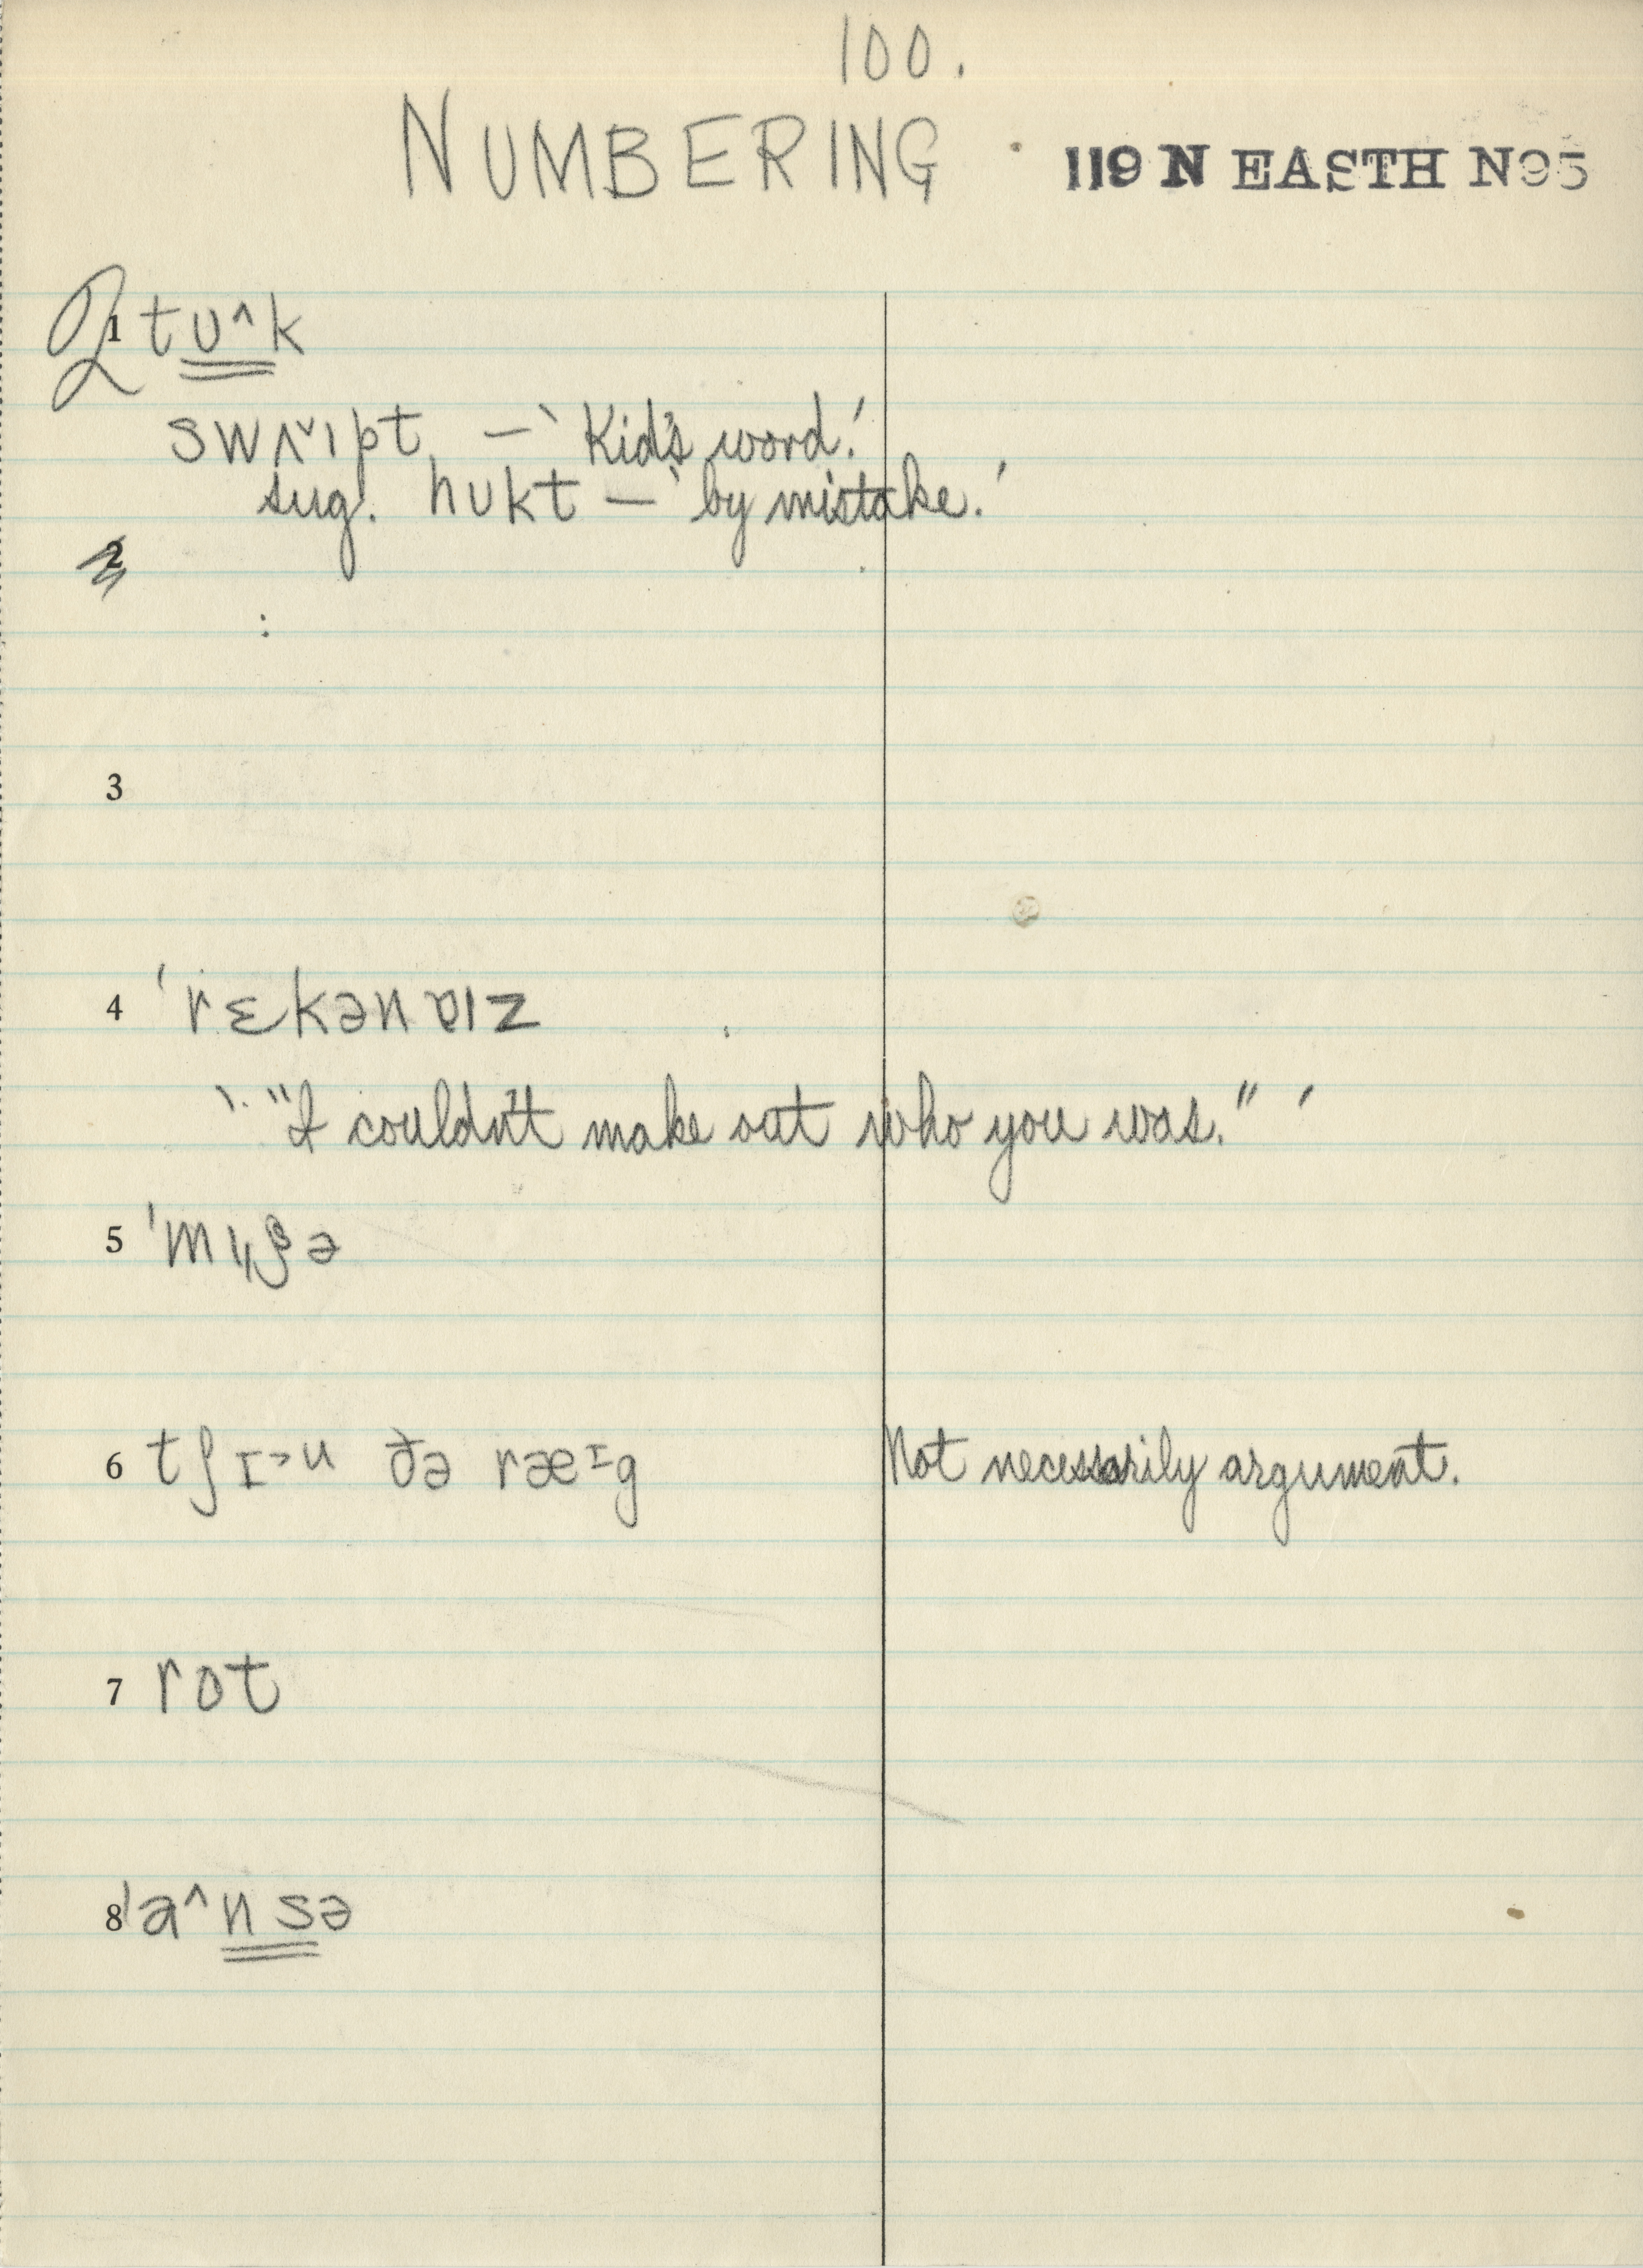 100.
NUMBERING 119 N EASTH N95
1 tʊ^k
swʌˇɪpt – 'Kid's word.'
sug. hʊkt – 'by mistake.'
2
:
3
4 ˈrɛkənɐɪz
'"I couldn't make out who you was."'
5
6 tʃɪ>u ðə ræɪg Not necessarily argument.
7 rot
8 ˈa^nsə